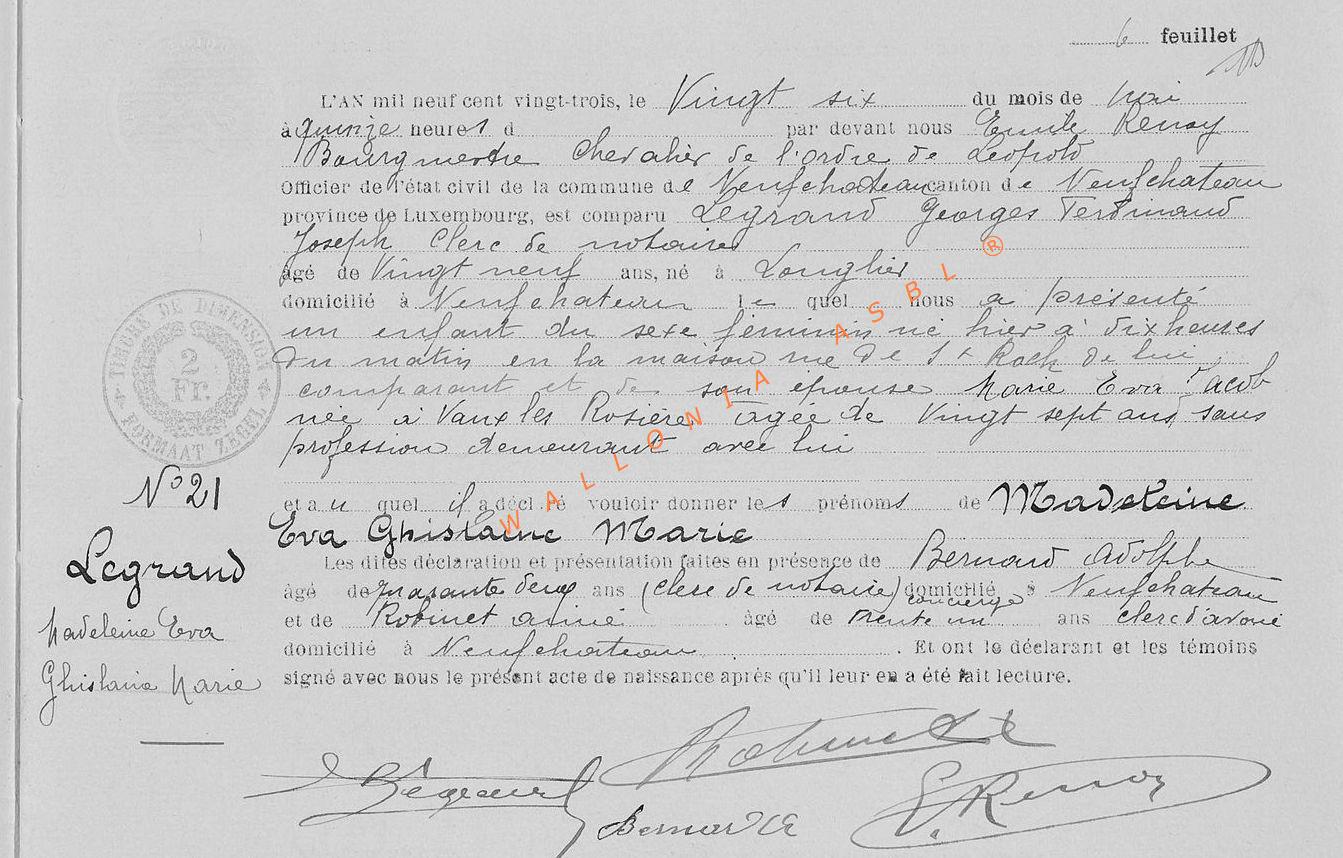 6 feuillet
L'AN mil neuf cent vingt-trois, le Vingt six du mois de Mai
à quinze heures d par devant nous Emile Renoy
Bourgmestre Chevalier de l'ordre de Léopold
Officier de l'état civil de la commune de Neufchateau canton de Neufchateau
province de Luxembourg, est comparu Legrand Georges Ferdinand
Joseph Clerc de notaire
âgé de Vingt neuf ans, né à Longlier
domicilié à Neufchateau lequel nous a présenté
un enfant du sexe féminin né hier à dix heures
du matin en la maison rue de St Roch de lui
comparant et de son épouse Marie Eva Jacob
née à Vaux les Rosière agée de Vingt sept ans, sans
profession demeurant avec lui
et au quel il a déclaré vouloir donner les prénoms de Madeleine
Eva Ghislaine Marie
Les dites déclaration et présentation faites en présence de Bernard Adolphe
âgé de quarante deux ans (clerc de notaire) concierge domicilié à Neufchateau
et de Robinet aimé âgé de trente un ans clerc d'avoué
domicilié à Neufchateau . Et ont le déclarant et les témoins
signé avec nous le présent acte de naissance après qu'il leur en a été fait lecture.
TIMBRE DE DIMENSION
2
Fr.
FORMAAT ZEGEL
N° 21
Legrand
Madeleine Eva
Ghislaine Marie
WALLONIA ASBL ®
Legrand
Robinet
Bernard A
E. Renoy